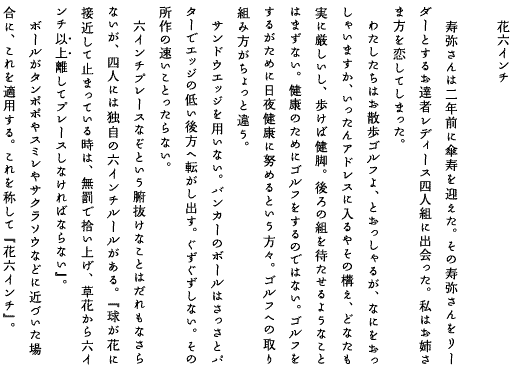 花六インチ
寿弥さんは二年前に傘寿を迎えた。その寿弥さんをリー
ダーとするお達者レディース四人組に出会った。私はお姉さ
ま方を恋してしまった。
わたしたちはお散歩ゴルフよ、とおっしゃるが、なにをおっ
しゃいますか、いったんアドレスに入るやその構え、どなたも
実に厳しいし、歩けば健脚。後ろの組を待たせるようなこと
はまずない。健康のためにゴルフをするのではない。ゴルフを
するがために日夜健康に努めるという方々。ゴルフへの取り
組み方がちょっと違う。
サンドウエッジを用いない。バンカーのボールはさっさとパ
ターでエッジの低い後方へ転がし出す。ぐずぐずしない。その
所作の速いことったらない。
六インチプレースなぞという腑抜けなことはだれもなさら
ないが、四人には独自の六インチルールがある。『球が花に
接近して止まっている時は、無罰で拾い上げ、草花から六イ
ンチ以上離してプレースしなければならない』。
ボールがタンポポやスミレやサクラソウなどに近づいた場
合に、これを適用する。これを称して『花六インチ』。